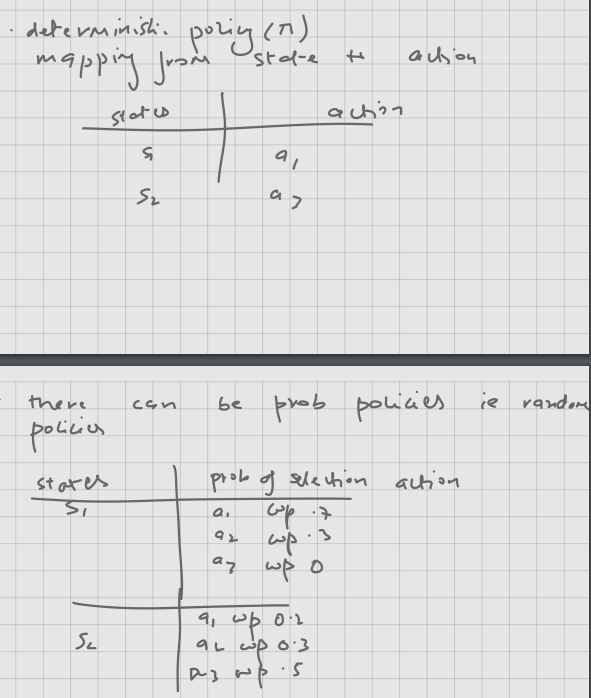 . deterministic. policy (π)
mapping from state to action
states action
s1 a1
s2 a3
. there can be prob policies ie random
policies
states prob of selection action
s1 a1 wp .7
a2 wp .3
a3 wp 0
a1 wp 0.2
s2 a2 wp 0.3
a3 wp .5